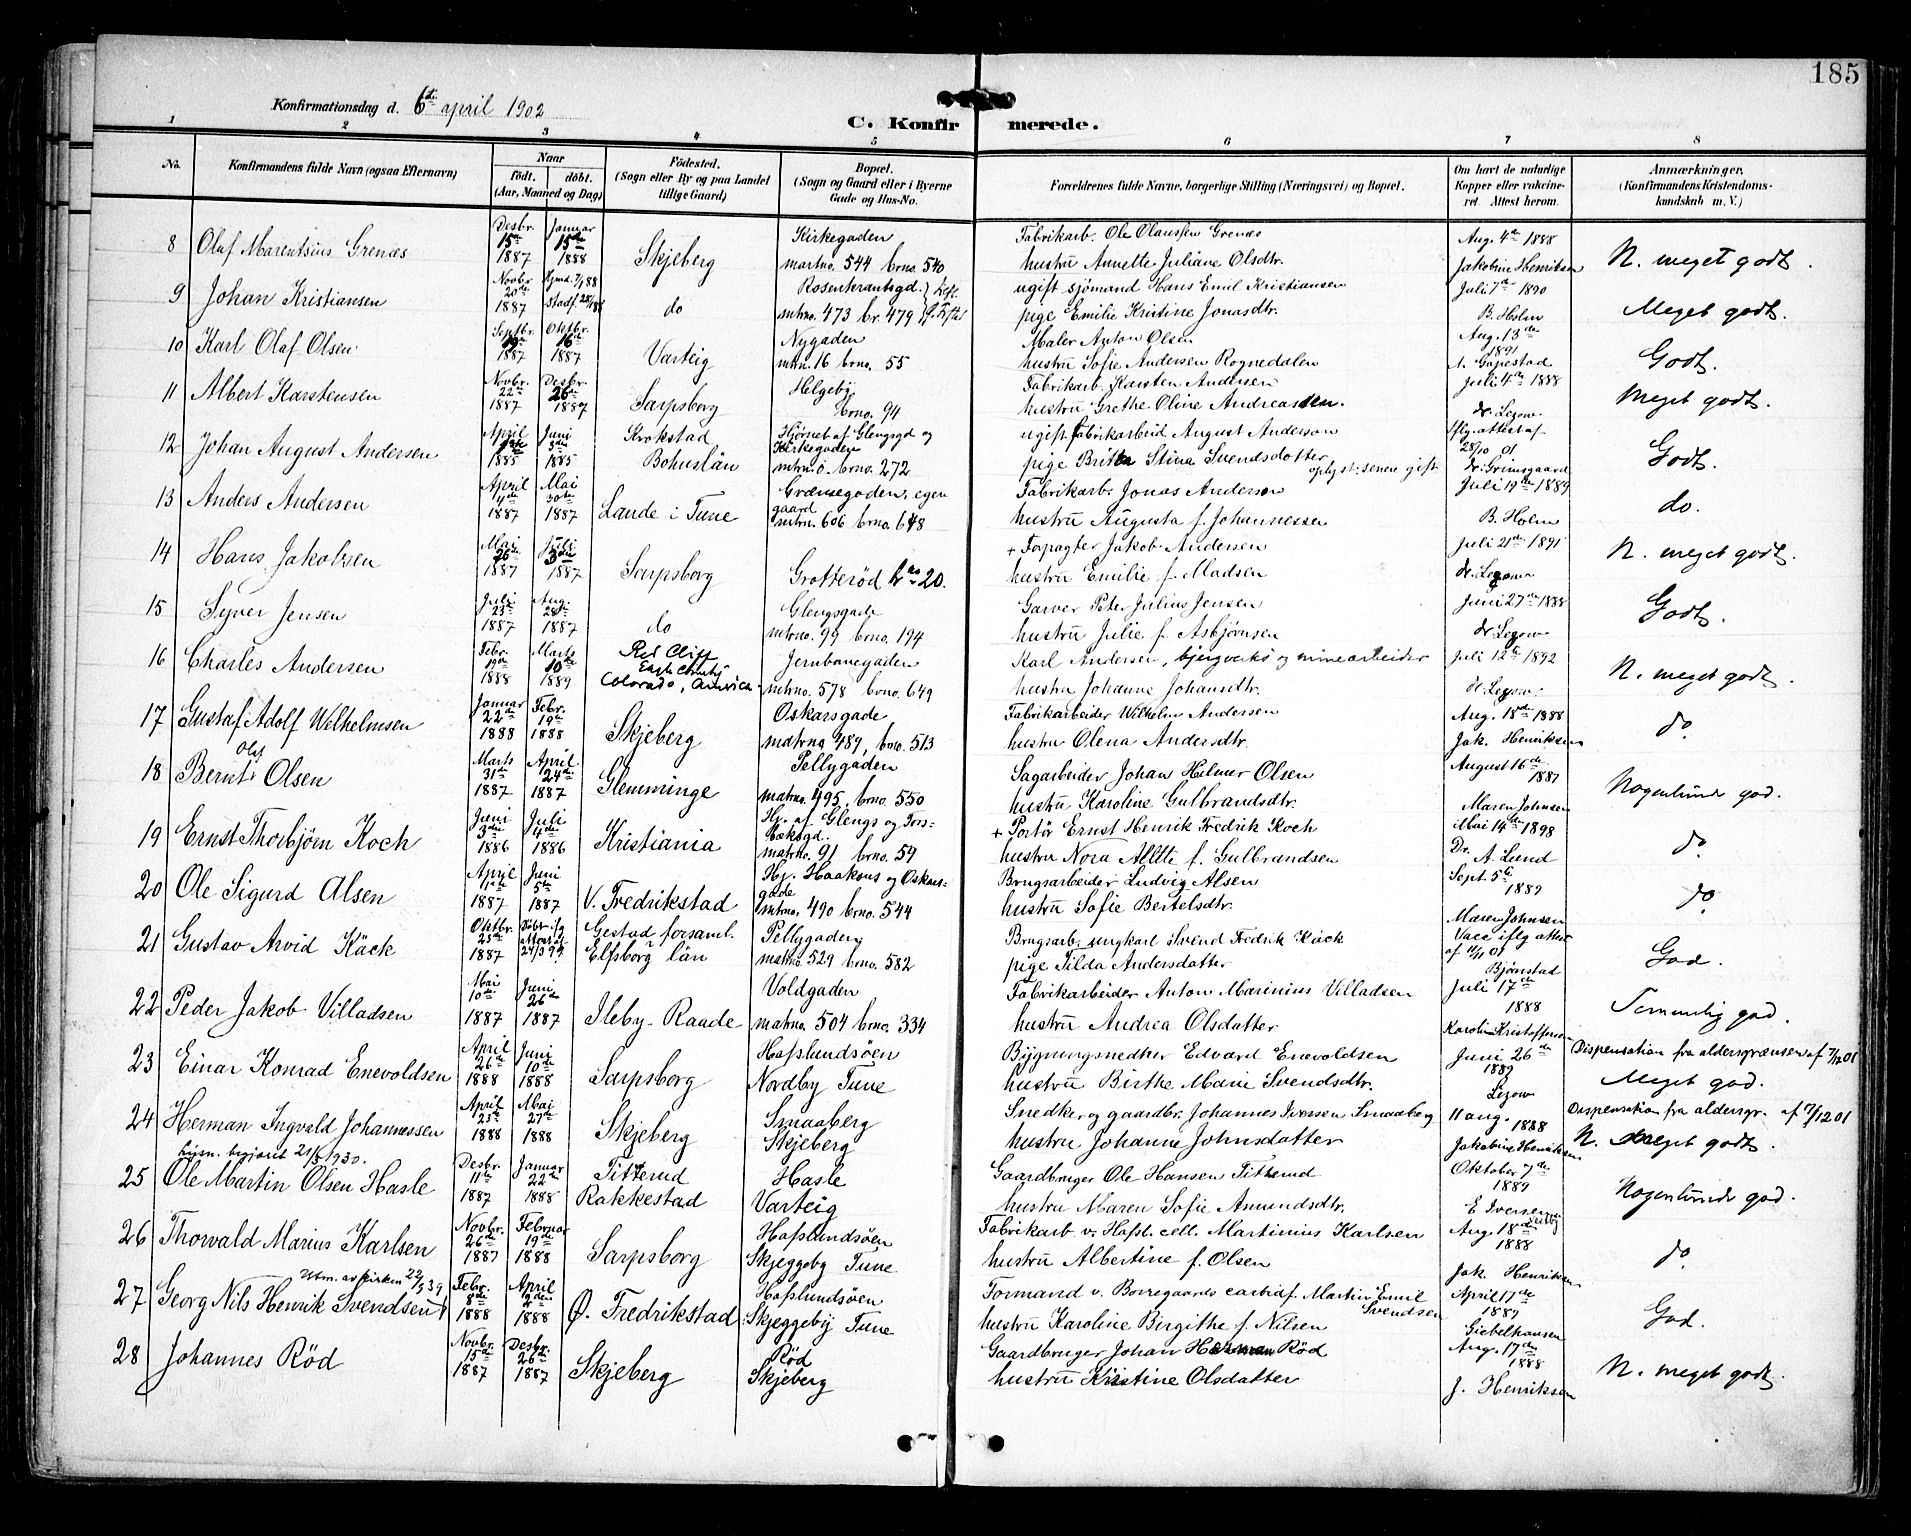 185
Konfirmationsdag d. 6te april 1902
C. Konfirmerede.
1 2 3 4 5 6 7 8
No. Konfirmandens fulde Navn (ogsaa Efternavn) Naar født. døbt. (Aar, Maaned og Dag) Fødested. (Sogn eller By og paa Landet tillige Gaard) Bopæl. (Sogn og Gaard eller i Byerne Gade og Hus-No. Forældrenes fulde Navne, borgerlige Stilling (Næringsvei) og Bopæl. Om havt de naturlige Kopper eller vakcineret. Attest herom. Anmærkninger. (Konfirmandens Kristendomskundskab m. V.)
8 Olaf Marentsius Grenæs Desbr. 15de 1887 Januar 15de 1888 Skjeberg Kirkegaden martno. 544 brno. 540 Fabrikarb. Ole Olaussen Grenæs hustru Annette Juliane Olsdtr. Aug. 4de 1888 Jakobine Henriksen N. meget godt.
9 Johan Kristiansen Novbr. 20de 1887 Hjmd. 7/1 88 Stadf. do Rosenkrantsgd. mtrno. 473 br. 479 ugift sjömand Hans Emil Kristiansen pige Emilie Kristine Jonasdtr. Juli 7de 1890 B. Holm Meget godt.
10 Karl Olaf Olsen Septbr. 19de 1887 Oktbr. 16de 1887 Varteig Nygaden mtrn. 16 brno. 55 Maler Anton Olsen hustru Sofie Andersen Rognedalen Aug. 13de 1891 Godt.
11 Albert Karstensen Novbr. 22de 1887 Desbr. 26de 1887 Sarpsborg Helgeby brno. 94 Fabrikarb. Karsten Andersen hustru Grethe Oline Andreassen. Juli 4de 1888 dr. Legow Meget godt.
12 Johan August Andersen April 1885 Juni 3die 1885 Krokstad Bohuslän Hjörnet af Glengsgd og Kirkegaden mtrn. 0 brno. 272 ugift Fabrikarbeid August Anderson pige Britta Stina Svendsdotter oplyst: senere gift iflg. attest af 28/10 01 dr. Grimsgaard Godt.
13 Anders Andersen April 11te 1887 Mai 30te 1887 Lande i Tune Grænsegaden, egen gaard mtrn. 606 brno. 648 Fabrikarb. Jonas Anderson hustru Augusta f. Johannessen Juli 19de 1889 B. Holm do.
14 Hans Jakobsen Mai 26de 1887 Juli 3die 1887 Sarpsborg Grotterød brno 20. + Forpagter Jakob Andersen hustru Emilie f. Madsen Juli 21de 1891 dr. Legow N. meget godt.
15 Syver Jensen Juli 23de 1887 Aug. 28de 1887 do Glengsgade mtrno. 99 brno. 194 Garver Peter Julius Jensen hustru Julie f. Asbjørnsen Juni 27de 1888 dr. Legow Godt.
16 Charles Andersen Febr. 19de 1888 Marts 10de 1889 Red Cliff Eagle County Colorado, America. Jernbanegaden mtrno. 578 brno. 649 Karl Andersen, bjergverks og minearbeider hustru Johanne Johansdtr. Juli 12te 1892 dr. Legow N. meget godt.
17 Gustaf Adolf Wilhelmsen Januar 22de 1888 Febr. 19de 1888 Skjeberg Oskarsgade matrno 489, brno. 513 Fabrikarbeider Wilhelm Andersen hustru Olena Andersdtr. Aug. 18de 1888 Jak. Henriksen do.
18 Bernt Olaf Olsen Marts 31de 1887 April 24de 1887 Glemminge Pellygaden matrno. 495, brno. 550 Sagarbeider Johan Helmer Olsen hustru Karoline Gulbrandsdtr. August 16de 1887 Maren Johnsen Nogenlunde god.
19 Ernst Thorbjörn Koch Juni 3die 1886 Juli 4de 1886 Kristiania Hj. af Glengs og Torsbækgd. matrno. 91 brno. 59 + Portör Ernst Henrik Fredrik Koch hustru Nora Alette f. Gulbrandsen Mai 14de 1898 Dr. A. Lund do.
20 Ole Sigurd Alsen April 1ste 1887 Juni 5te 1887 V. Fredrikstad Hj. Haakons og Oskarsgade mtrno. 490 brno. 544 Brugsarbeider Ludvig Alsen hustru Sofie Bertelsdtr. Sept. 5te 1889 Maren Johnsen do.
21 Gustav Arvid Käck Oktbr. 23de 1887 Döbr. ifg attest af Gestad forsaml. Elfsborg län Pellygaden matrno. 529 brno. 582 Brugsarb. ungkarl Svend Fredrik Käck pige Tilda Andersdatter Vacc iflg attest af 11/11 01 Bjørnstad God.
22 Peder Jakob Villadsen Mai 10de 1887 Juni 26de 1887 Ileby- Raade Voldgaden matrno. 504 brno. 334 Fabrikarbeider Anton Marinius Villadsen hustru Andrea Olsdatter Juli 17de 1888 Karoline Kristoffersen Temmelig god.
23 Einar Konrad Enevoldsen April 26de 1888 Juni 10de 1888 Sarpsborg Hafslundsöen Nordby Tune Bygningssnedker Edvard Enevoldsen hustru Birthe Marie Svendsdtr. Juni 26de 1889 Legow Dispensation fra aldersgrænsen af 7/12 01 Meget god.
24 Herman Ingvald Johannessen April 23de 1888 Mai 27de 1888 Skjeberg Smaaberg Skjeberg Snedker og gaardbr. Johannes Iversen Smaaberg hustru Johanne Johnsdatter 11 aug. 1888 Jakobine Henriksen Dispensation fra aldersgr. af 7/12 01 N. meget godt.
25 Ole Martin Olsen Hasle Desbr. 11te 1887 Januar 22de 1888 Titterud Rakkestad Hasle Varteig Gaardbruger Ole Hansen Titterud hustru Maren Sofie Amundsdtr. Oktober 7de 1889 E Iversen Nogenlunde god.
26 Thorvald Marius Karlsen Novbr. 26de 1887 Februar 19de 1888 Sarpsborg Hafslundsöen Skjeggeby Tune Fabrikarb v. Hafsl. cell. Martinius Karlsen hustru Albertine f. Olsen Aug. 18de 1888 Jak. Henriksen do.
27 Georg Nils Henrik Svendsen Utm. av kirken 22/5 39 Febr. 8de 1888 April 2den 1888 Ø. Fredrikstad Hafslundsöen Skjeggeby Tune Formand v. Borregaards carbidf. Martin Emil Svendsen hustru Karoline Birgithe f. Nilsen April 17de 1889 Giebelhausen God.
28 Johannes Röd Novbr. 15de 1887 Desbr. 26de 1887 Skjeberg Röd Skjeberg Gaardbruger Johan Herman Röd hustru Kristine Olsdatter Aug. 17de 1888 J. Henriksen N. meget godt.